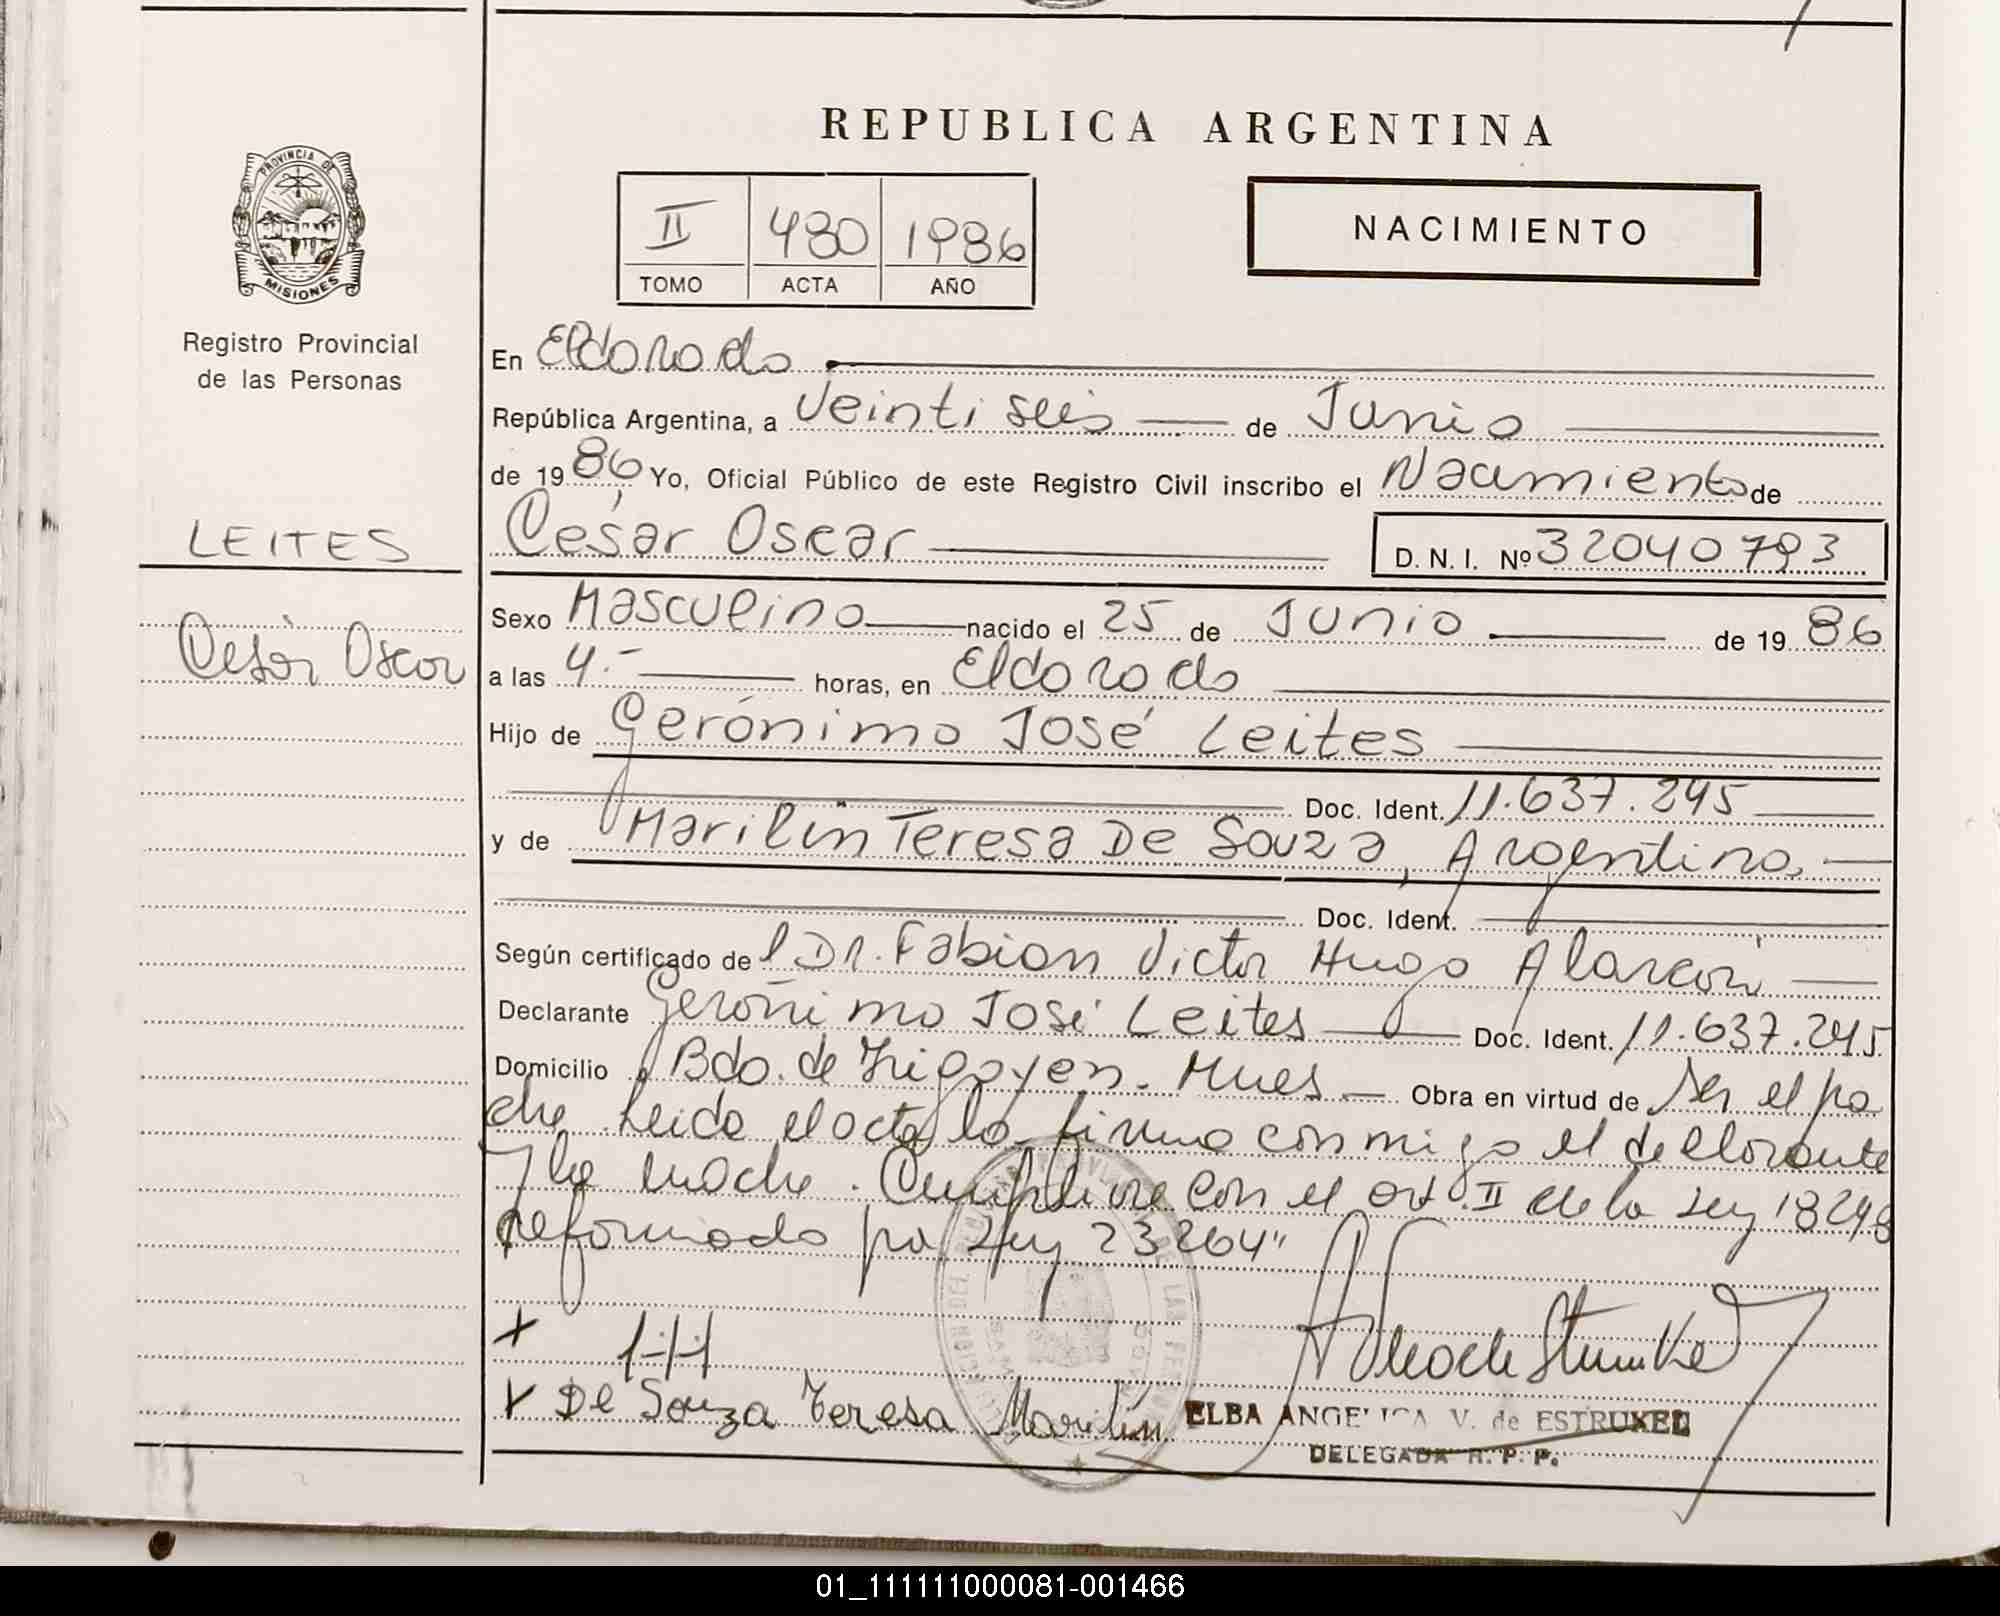 REPUBLICA ARGENTINA
PROVINCIA DE
MISIONES
Registro Provincial
de las Personas
II 480 1986
TOMO ACTA AÑO
NACIMIENTO
En Eldorado
República Argentina, a Veintiseis de Junio
de 1986 Yo, Oficial Público de este Registro Civil inscribo el Nacimiento de
LEITES
César Oscar
D. N. I. Nº 32040793
César Oscar
Sexo Masculino nacido el 25 de Junio de 1986
a las 4.- horas, en Eldorado
Hijo de Gerónimo José Leites
Doc. Ident. 11.637.245
y de Marilin Teresa De Souza, Argentina,
Doc. Ident.
Según certificado del Dr. Fabian Victor Hugo Alarcón
Declarante Gerónimo José Leites Doc. Ident. 11.637.245
Domicilio Bdo. de Irigoyen. Mnes Obra en virtud de ser el pa
dre. Leida el acta la firma conmigo el declarante
y la madre. Cumplime con el art. II de la Ley 18248
reformado por Ley 23264"
De Souza Teresa Marilin
ELBA ANGELICA V. de ESTRUXED
DELEGADA R. P. P.
01_111111000081-001466